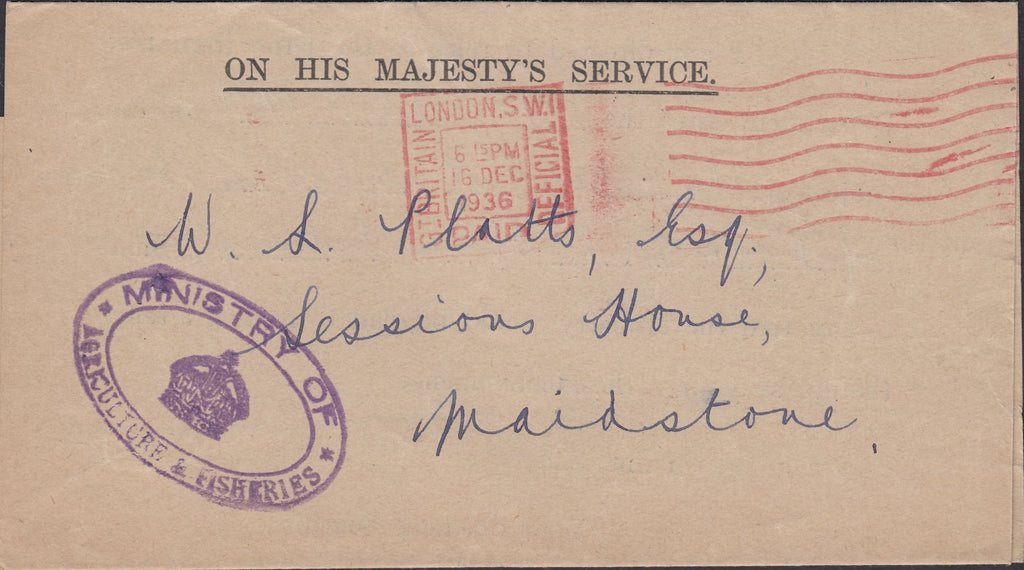 ON HIS MAJESTY'S SERVICE.
LONDON. S.W.1
GT. BRITAIN
6 15 PM
16 DEC
1936
OFFICIAL
PAID
W. L. Platts, Esq.,
Sessions House,
Maidstone.
* MINISTRY OF *
AGRICULTURE & FISHERIES